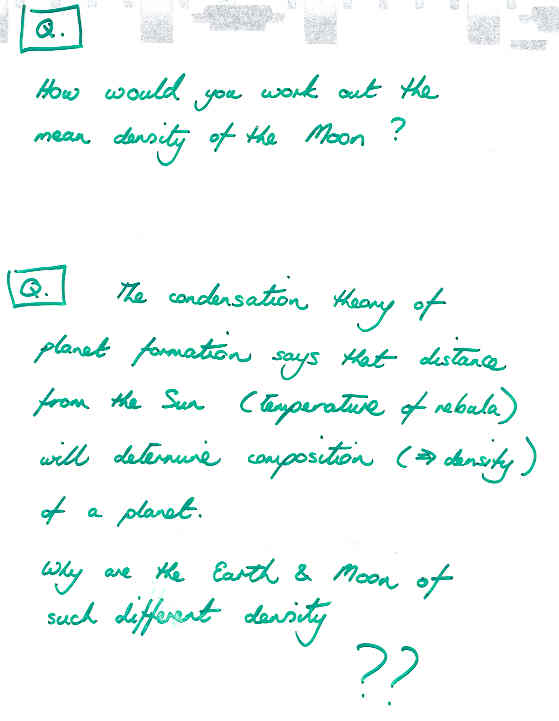 Q.
How would you work out the
mean density of the Moon ?
Q. The condensation theory of
planet formation says that distance
from the Sun (temperature of nebula)
will determine composition (⇒ density)
of a planet.
Why are the Earth & Moon of
such different density
??